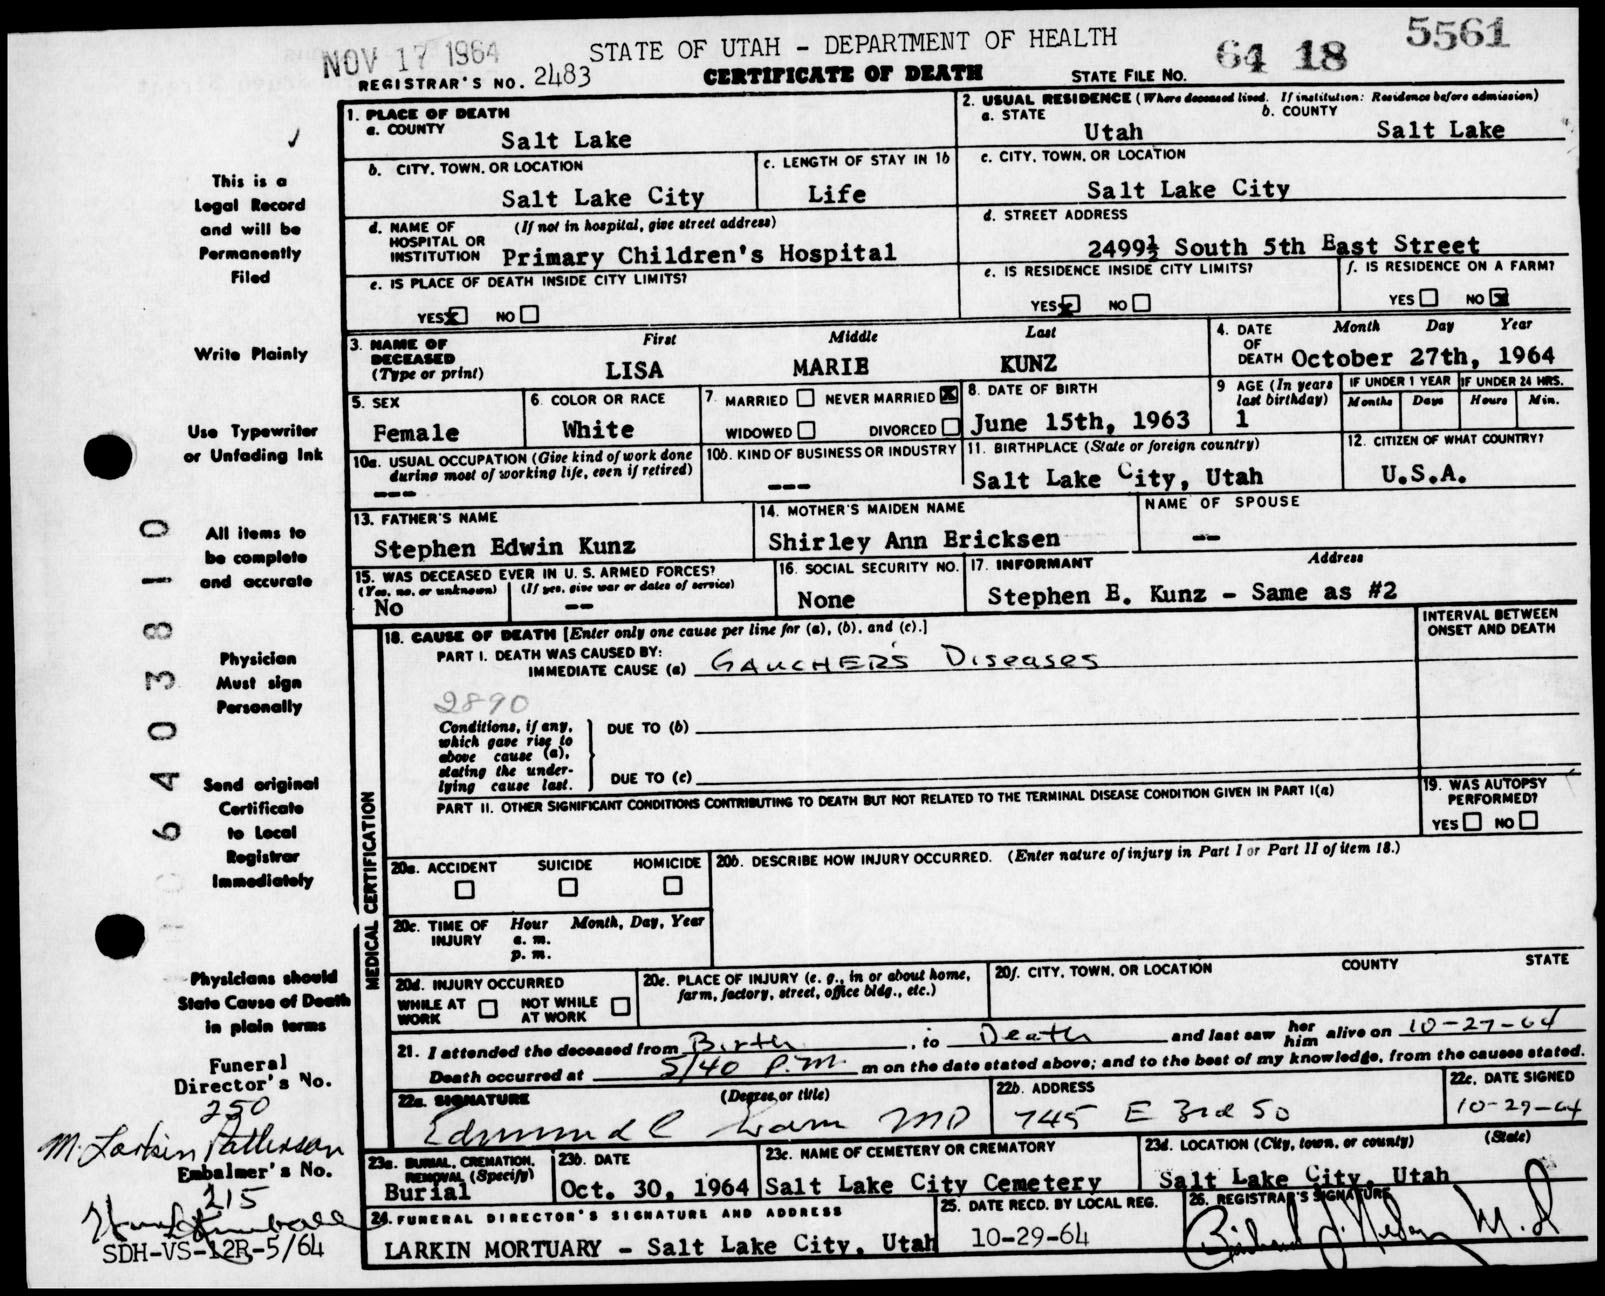 NOV 17 1964
STATE OF UTAH - DEPARTMENT OF HEALTH
64 18 5561
REGISTRAR'S NO. 2483
CERTIFICATE OF DEATH
STATE FILE NO.
1. PLACE OF DEATH
a. COUNTY
Salt Lake
2. USUAL RESIDENCE (Where deceased lived. If institution: Residence before admission)
a. STATE
Utah
b. COUNTY
Salt Lake
b. CITY, TOWN, OR LOCATION
Salt Lake City
c. LENGTH OF STAY IN 1b
Life
c. CITY, TOWN, OR LOCATION
Salt Lake City
d. NAME OF HOSPITAL OR INSTITUTION
(If not in hospital, give street address)
Primary Children's Hospital
d. STREET ADDRESS
2499½ South 5th East Street
e. IS PLACE OF DEATH INSIDE CITY LIMITS?
YES x NO
e. IS RESIDENCE INSIDE CITY LIMITS?
YES x NO
f. IS RESIDENCE ON A FARM?
YES NO x
3. NAME OF DECEASED (Type or print)
First Middle Last
LISA MARIE KUNZ
4. DATE OF DEATH
Month Day Year
October 27th, 1964
5. SEX
Female
6. COLOR OR RACE
White
7. MARRIED NEVER MARRIED x
WIDOWED DIVORCED
8. DATE OF BIRTH
June 15th, 1963
9 AGE (In years last birthday)
1
IF UNDER 1 YEAR
Months Days
IF UNDER 24 HRS.
Hours Min.
10a. USUAL OCCUPATION (Give kind of work done during most of working life, even if retired)
---
10b. KIND OF BUSINESS OR INDUSTRY
---
11. BIRTHPLACE (State or foreign country)
Salt Lake City, Utah
12. CITIZEN OF WHAT COUNTRY?
U.S.A.
13. FATHER'S NAME
Stephen Edwin Kunz
14. MOTHER'S MAIDEN NAME
Shirley Ann Ericksen
NAME OF SPOUSE
--
15. WAS DECEASED EVER IN U. S. ARMED FORCES?
(Yes, no, or unknown) (If yes, give war or dates of service)
No --
16. SOCIAL SECURITY NO.
None
17. INFORMANT Address
Stephen E. Kunz - Same as #2
MEDICAL CERTIFICATION
18. CAUSE OF DEATH [Enter only one cause per line for (a), (b), and (c).]
INTERVAL BETWEEN ONSET AND DEATH
PART I. DEATH WAS CAUSED BY:
IMMEDIATE CAUSE (a) GAUCHER'S Diseases
2890
Conditions, if any, which gave rise to above cause (a), stating the underlying cause last.
DUE TO (b)
DUE TO (c)
PART II. OTHER SIGNIFICANT CONDITIONS CONTRIBUTING TO DEATH BUT NOT RELATED TO THE TERMINAL DISEASE CONDITION GIVEN IN PART I(a)
19. WAS AUTOPSY PERFORMED?
YES NO
20a. ACCIDENT SUICIDE HOMICIDE
20b. DESCRIBE HOW INJURY OCCURRED. (Enter nature of injury in Part I or Part II of item 18.)
20c. TIME OF INJURY
Hour Month, Day, Year
a. m.
p. m.
20d. INJURY OCCURRED
WHILE AT WORK NOT WHILE AT WORK
20e. PLACE OF INJURY (e. g., in or about home, farm, factory, street, office bldg., etc.)
20f. CITY, TOWN, OR LOCATION COUNTY STATE
21. I attended the deceased from Birth, to Death and last saw her him alive on 10-27-64
Death occurred at 5/40 P.M. m on the date stated above; and to the best of my knowledge, from the causes stated.
22a. SIGNATURE (Degree or title)
Edmund C MD
22b. ADDRESS
745 E 3rd So
22c. DATE SIGNED
10-29-64
23a. BURIAL, CREMATION, REMOVAL (Specify)
Burial
23b. DATE
Oct. 30, 1964
23c. NAME OF CEMETERY OR CREMATORY
Salt Lake City Cemetery
23d. LOCATION (City, town, or county) (State)
Salt Lake City, Utah
24. FUNERAL DIRECTOR'S SIGNATURE AND ADDRESS
LARKIN MORTUARY - Salt Lake City, Utah
25. DATE RECD. BY LOCAL REG.
10-29-64
26. REGISTRAR'S SIGNATURE
M.D
This is a
Legal Record
and will be
Permanently
Filed
Write Plainly
Use Typewriter
or Unfading Ink
All items to
be complete
and accurate
Physician
Must sign
Personally
Send original
Certificate
to Local
Registrar
Immediately
Physicians should
State Cause of Death
in plain terms
Funeral
Director's No.
250
M. Larkin Patterson
Embalmer's No.
215
SDH-VS-12R-5/64
6403810